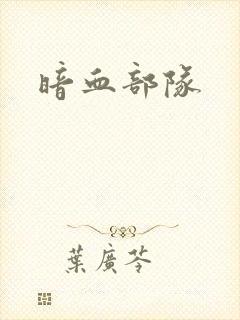 暗血部隊
葉廣芩